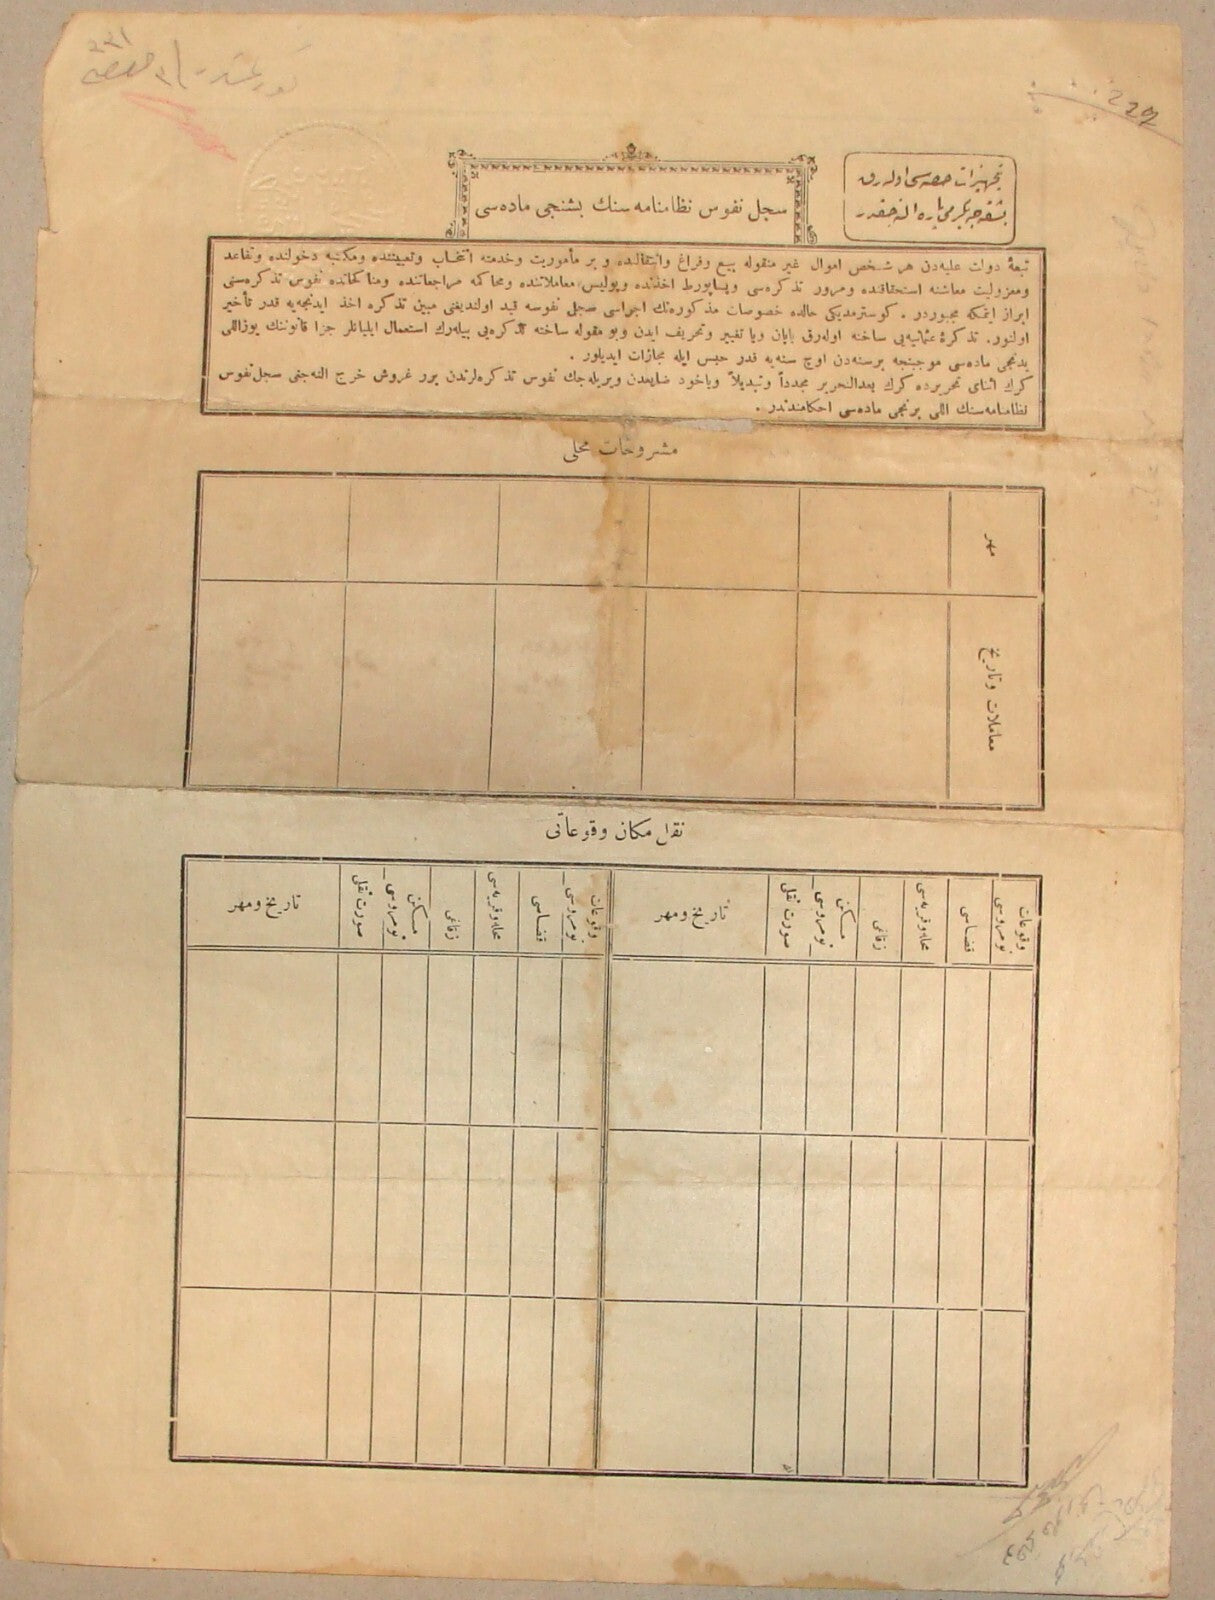 تجهیزات حصه‌سی اوله‌رق
بشقه‌جه یكرمی پاره النه‌جقدر
سجل نفوس نظامنامه‌سنك بشنجی ماده‌سی
تبعهٔ دولت علیه‌دن هر شخص اموال غیر منقوله بیع وفراغ وانتقالنده و بر مأموریت وخدمته انتخاب وتعییننده ومكتبه دخولنده وتقاعد
ومعزولیت معاشنه استحقاقنده ومرور تذكره‌سی وپساپورط اخذنده وپولیس معاملاتنده ومحاكمه مراجعاتنده ومناكحاتده نفوس تذكره‌سنی
ابراز ایتمكه مجبوردر . كوسترمدیكی حالده خصوصات مذكوره‌نك اجراسی سجل نفوسه قید اولندیغنی مبین تذكره اخذ ایدنجه‌یه قدر تأخیر
اولنور. تذكرهٔ عثمانیه‌یی ساخته اوله‌رق یاپان ویا تغییر وتحریف ایدن وبو مقوله ساخته تذكره‌یی بیله‌رك استعمال ایلیانلر جزا قانوننك یوزاللی
یدنجی ماده‌سی موجبنجه برسنه‌دن اوچ سنه‌یه قدر حبس ایله مجازات ایدیلور .
كرك اثنای تحریرده كرك بعدالتحریر مجدداً وتبدیلاً ویاخود ضایعدن ویریله‌جك نفوس تذكره‌لرندن برر غروش خرج النه‌جغی سجل نفوس
نظامنامه‌سنك اللی برنجی ماده‌سی احكامندندر .
مشروحات محلی
مهر
معاملات وتاریخ
نقل مكان وقوعاتی
وقوعات نومروسی
قضاسی
محله‌ وقریه‌سی
زقاغی
مسكن نومروسی
صورت نقلی
تاریخ ومهر
وقوعات نومروسی
قضاسی
محله‌ وقریه‌سی
زقاغی
مسكن نومروسی
صورت نقلی
تاریخ ومهر